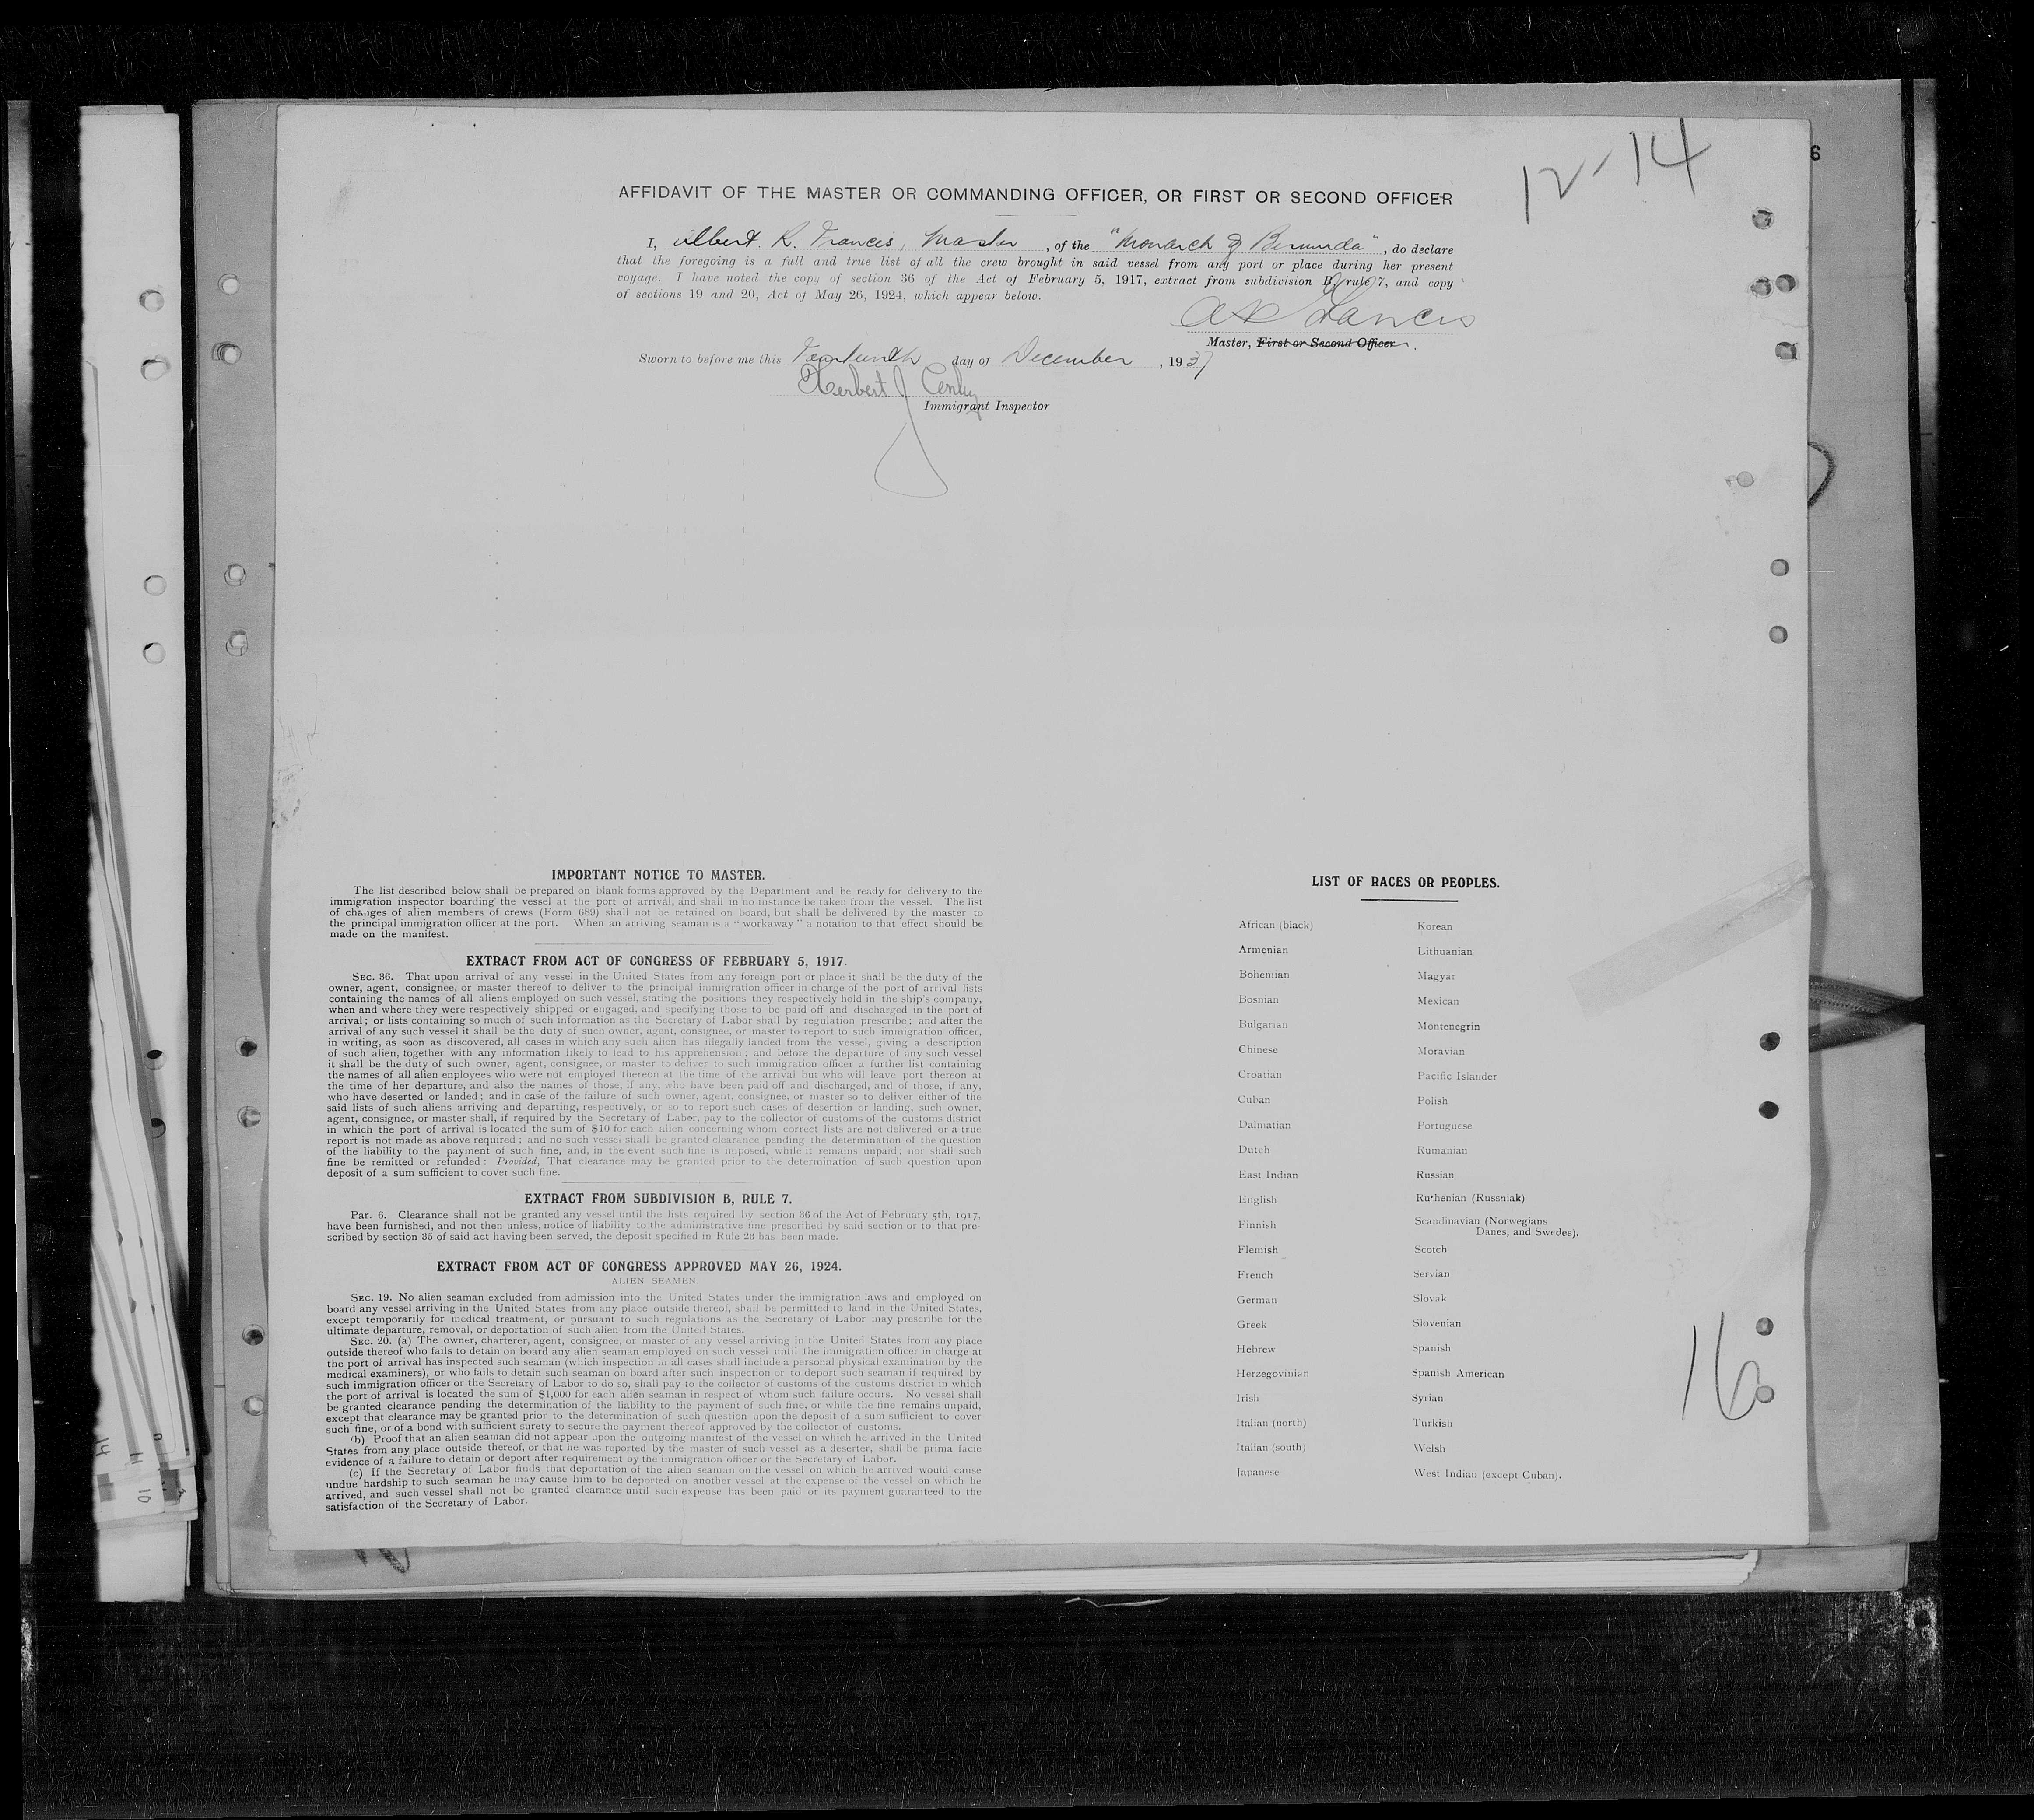 12-14
6
AFFIDAVIT OF THE MASTER OR COMMANDING OFFICER, OR FIRST OR SECOND OFFICER
I, Albert R. Francis, Master, of the "Monarch of Bermuda", do declare
that the foregoing is a full and true list of all the crew brought in said vessel from any port or place during her present
voyage. I have noted the copy of section 36 of the Act of February 5, 1917, extract from subdivision B, rule 7, and copy
of sections 19 and 20, Act of May 26, 1924, which appear below.
A R Francis
Master, First or Second Officer.
Sworn to before me this Fourteenth day of December, 1937
Herbert J.
Immigrant Inspector
IMPORTANT NOTICE TO MASTER.
The list described below shall be prepared on blank forms approved by the Department and be ready for delivery to the
immigration inspector boarding the vessel at the port of arrival, and shall in no instance be taken from the vessel. The list
of changes of alien members of crews (Form 689) shall not be retained on board, but shall be delivered by the master to
the principal immigration officer at the port. When an arriving seaman is a "workaway" a notation to that effect should be
made on the manifest.
EXTRACT FROM ACT OF CONGRESS OF FEBRUARY 5, 1917.
SEC. 36. That upon arrival of any vessel in the United States from any foreign port or place it shall be the duty of the
owner, agent, consignee, or master thereof to deliver to the principal immigration officer in charge of the port of arrival lists
containing the names of all aliens employed on such vessel, stating the positions they respectively hold in the ship's company,
when and where they were respectively shipped or engaged, and specifying those to be paid off and discharged in the port of
arrival; or lists containing so much of such information as the Secretary of Labor shall by regulation prescribe; and after the
arrival of any such vessel it shall be the duty of such owner, agent, consignee, or master to report to such immigration officer,
in writing, as soon as discovered, all cases in which any such alien has illegally landed from the vessel, giving a description
of such alien, together with any information likely to lead to his apprehension; and before the departure of any such vessel
it shall be the duty of such owner, agent, consignee, or master to deliver to such immigration officer a further list containing
the names of all alien enployees who were not employed thereon at the time of the arrival but who will leave port thereon at
the time of her departure, and also the names of those, if any, who have been paid off and discharged, and of those, if any,
who have deserted or landed; and in case of the failure of such owner, agent, consignee, or master so to deliver either of the
said lists of such aliens arriving and departing, respectively, or so to report such cases of desertion or landing, such owner,
agent, consignee, or master shall, if required by the Secretary of Labor, pay to the collector of customs of the customs district
in which the port of arrival is located the sum of $10 for each alien concerning whom correct lists are not delivered or a true
report is not made as above required; and no such vessel shall be granted clearance pending the determination of the question
of the liability to the payment of such fine, and, in the event such fine is imposed, while it remains unpaid; nor shall such
fine be remitted or refunded: Provided, That clearance may be granted prior to the determination of such question upon
deposit of a sum sufficient to cover such fine.
EXTRACT FROM SUBDIVISION B, RULE 7.
Par. 6. Clearance shall not be granted any vessel until the lists required by section 36 of the Act of February 5th, 1917,
have been furnished, and not then unless, notice of liability to the administrative fine prescribed by said section or to that pre-
scribed by section 35 of said act having been served, the deposit specified in Rule 28 has been made.
EXTRACT FROM ACT OF CONGRESS APPROVED MAY 26, 1924.
ALIEN SEAMEN.
SEC. 19. No alien seaman excluded from admission into the United States under the immigration laws and employed on
board any vessel arriving in the United States from any place outside thereof, shall be permitted to land in the United States,
except temporarily for medical treatment, or pursuant to such regulations as the Secretary of Labor may prescribe for the
ultimate departure, removal, or deportation of such alien from the United States.
SEC. 20. (a) The owner, charterer, agent, consignee, or master of any vessel arriving in the United States from any place
outside thereof who fails to detain on board any alien seaman employed on such vessel until the immigration officer in charge at
the port of arrival has inspected such seaman (which inspection in all cases shall include a personal physical examination by the
medical examiners), or who fails to detain such seaman on board after such inspection or to deport such seaman if required by
such immigration officer or the Secretary of Labor to do so, shall pay to the collector of customs of the customs district in which
the port of arrival is located the sum of $1,000 for each alien seaman in respect of whom such failure occurs. No vessel shall
be granted clearance pending the determination of the liability to the payment of such fine, or while the fine remains unpaid,
except that clearance may be granted prior to the determination of such question upon the deposit of a sum sufficient to cover
such fine, or of a bond with sufficient surety to secure the payment thereof approved by the collector of customs.
(b) Proof that an alien seaman did not appear upon the outgoing manifest of the vessel on which he arrived in the United
States from any place outside thereof, or that he was reported by the master of such vessel as a deserter, shall be prima facie
evidence of a failure to detain or deport after requirement by the immigration officer or the Secretary of Labor.
(c) If the Secretary of Labor finds that deportation of the alien seaman on the vessel on which he arrived would cause
undue hardship to such seaman he may cause him to be deported on another vessel at the expense of the vessel on which he
arrived, and such vessel shall not be granted clearance until such expense has been paid or its payment guaranteed to the
satisfaction of the Secretary of Labor.
LIST OF RACES OR PEOPLES.
African (black)
Armenian
Bohemian
Bosnian
Bulgarian
Chinese
Croatian
Cuban
Dalmatian
Dutch
East Indian
English
Finnish
Flemish
French
German
Greek
Hebrew
Herzegovinian
Irish
Italian (north)
Italian (south)
Japanese
Korean
Lithuanian
Magyar
Mexican
Montenegrin
Moravian
Pacific Islander
Polish
Portuguese
Rumanian
Russian
Ruthenian (Russniak)
Scandinavian (Norwegians
Danes, and Swedes).
Scotch
Servian
Slovak
Slovenian
Spanish
Spanish American
Syrian
Turkish
Welsh
West Indian (except Cuban).
16
14
11
10